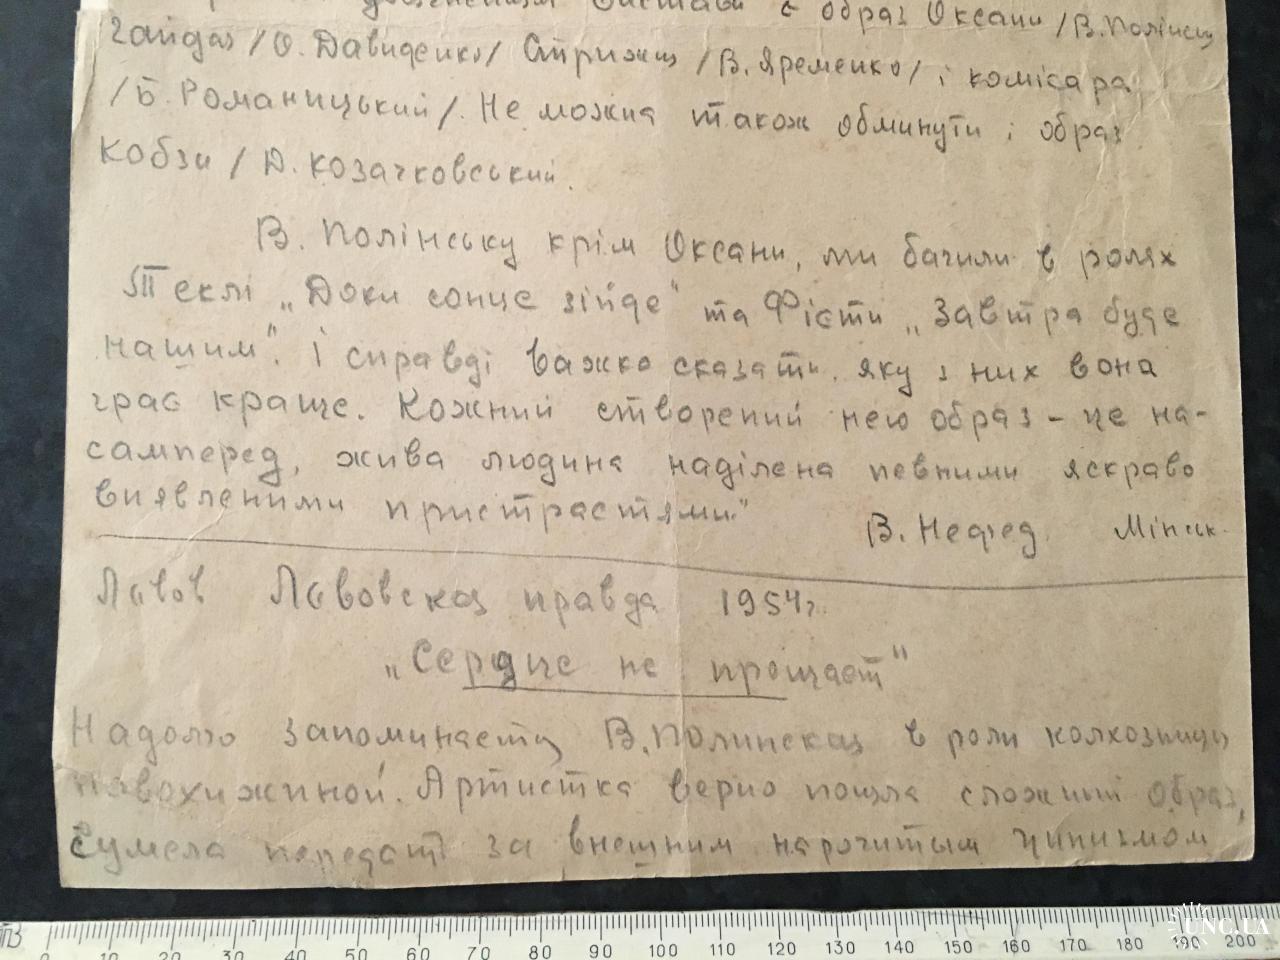 вистави є образ Оксани /В. Полінськ
Гайдая /О. Давиденко/ Стрижня /В. Яременко/ і комісара
/Б. Романицький/. Не можна також обминути і образ
Кобзи /Д. Козачковський.
В. Полінську крім Оксани, ми бачили в ролях
Теклі „Доки сонце зійде" та Фієти „Завтра буде
нашим". І справді важко сказати, яку з них вона
грає краще. Кожний створений нею образ – це на-
самперед, жива людина наділена певними яскраво
виявленими пристрастями."
В. Нефед Мінськ.
Львов Львовская правда 1954 г.
„Сердце не прощает"
Надолго запоминается В. Полинская в роли колхозницы
Артистка верно поняла сложный образ,
Сумела передать за внешним нарочитым цинизмом
0 10 20 30 40 50 60 70 80 90 100 110 120 130 140 150 160 170 180 190 200
UNC.UA